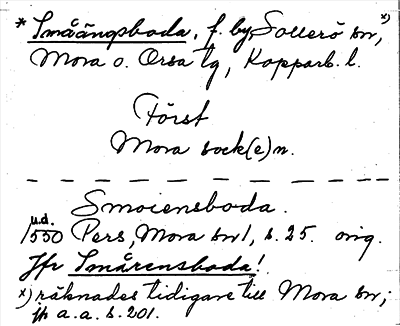 * Småängsboda, f. by, Sollerö sn, x)
Mora o. Orsa tg, Kopparb. l.
Först
Mora sock(e)n.
Smoiensboda.
u.d.
1550 Pers, Mora sn 1, s. 25. orig.
Jfr Smårensboda!
x) räknades tidigare till Mora sn;
jfr a.a. s. 201.